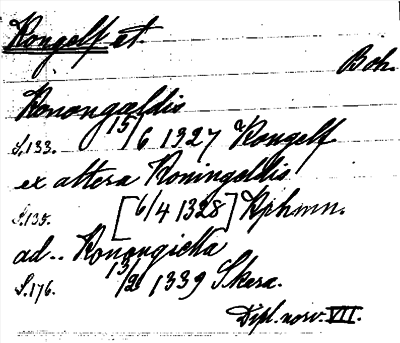 Kongelf et.
Boh.
Konongældis
S.133. 15/6 1327 Kongelf
ex altera Koningeldis
S.135. [6/4 1328] Kphmn.
ad.. Konongiella
S.176. 13/2 1339 Skera.
Dipl. norv. VII.